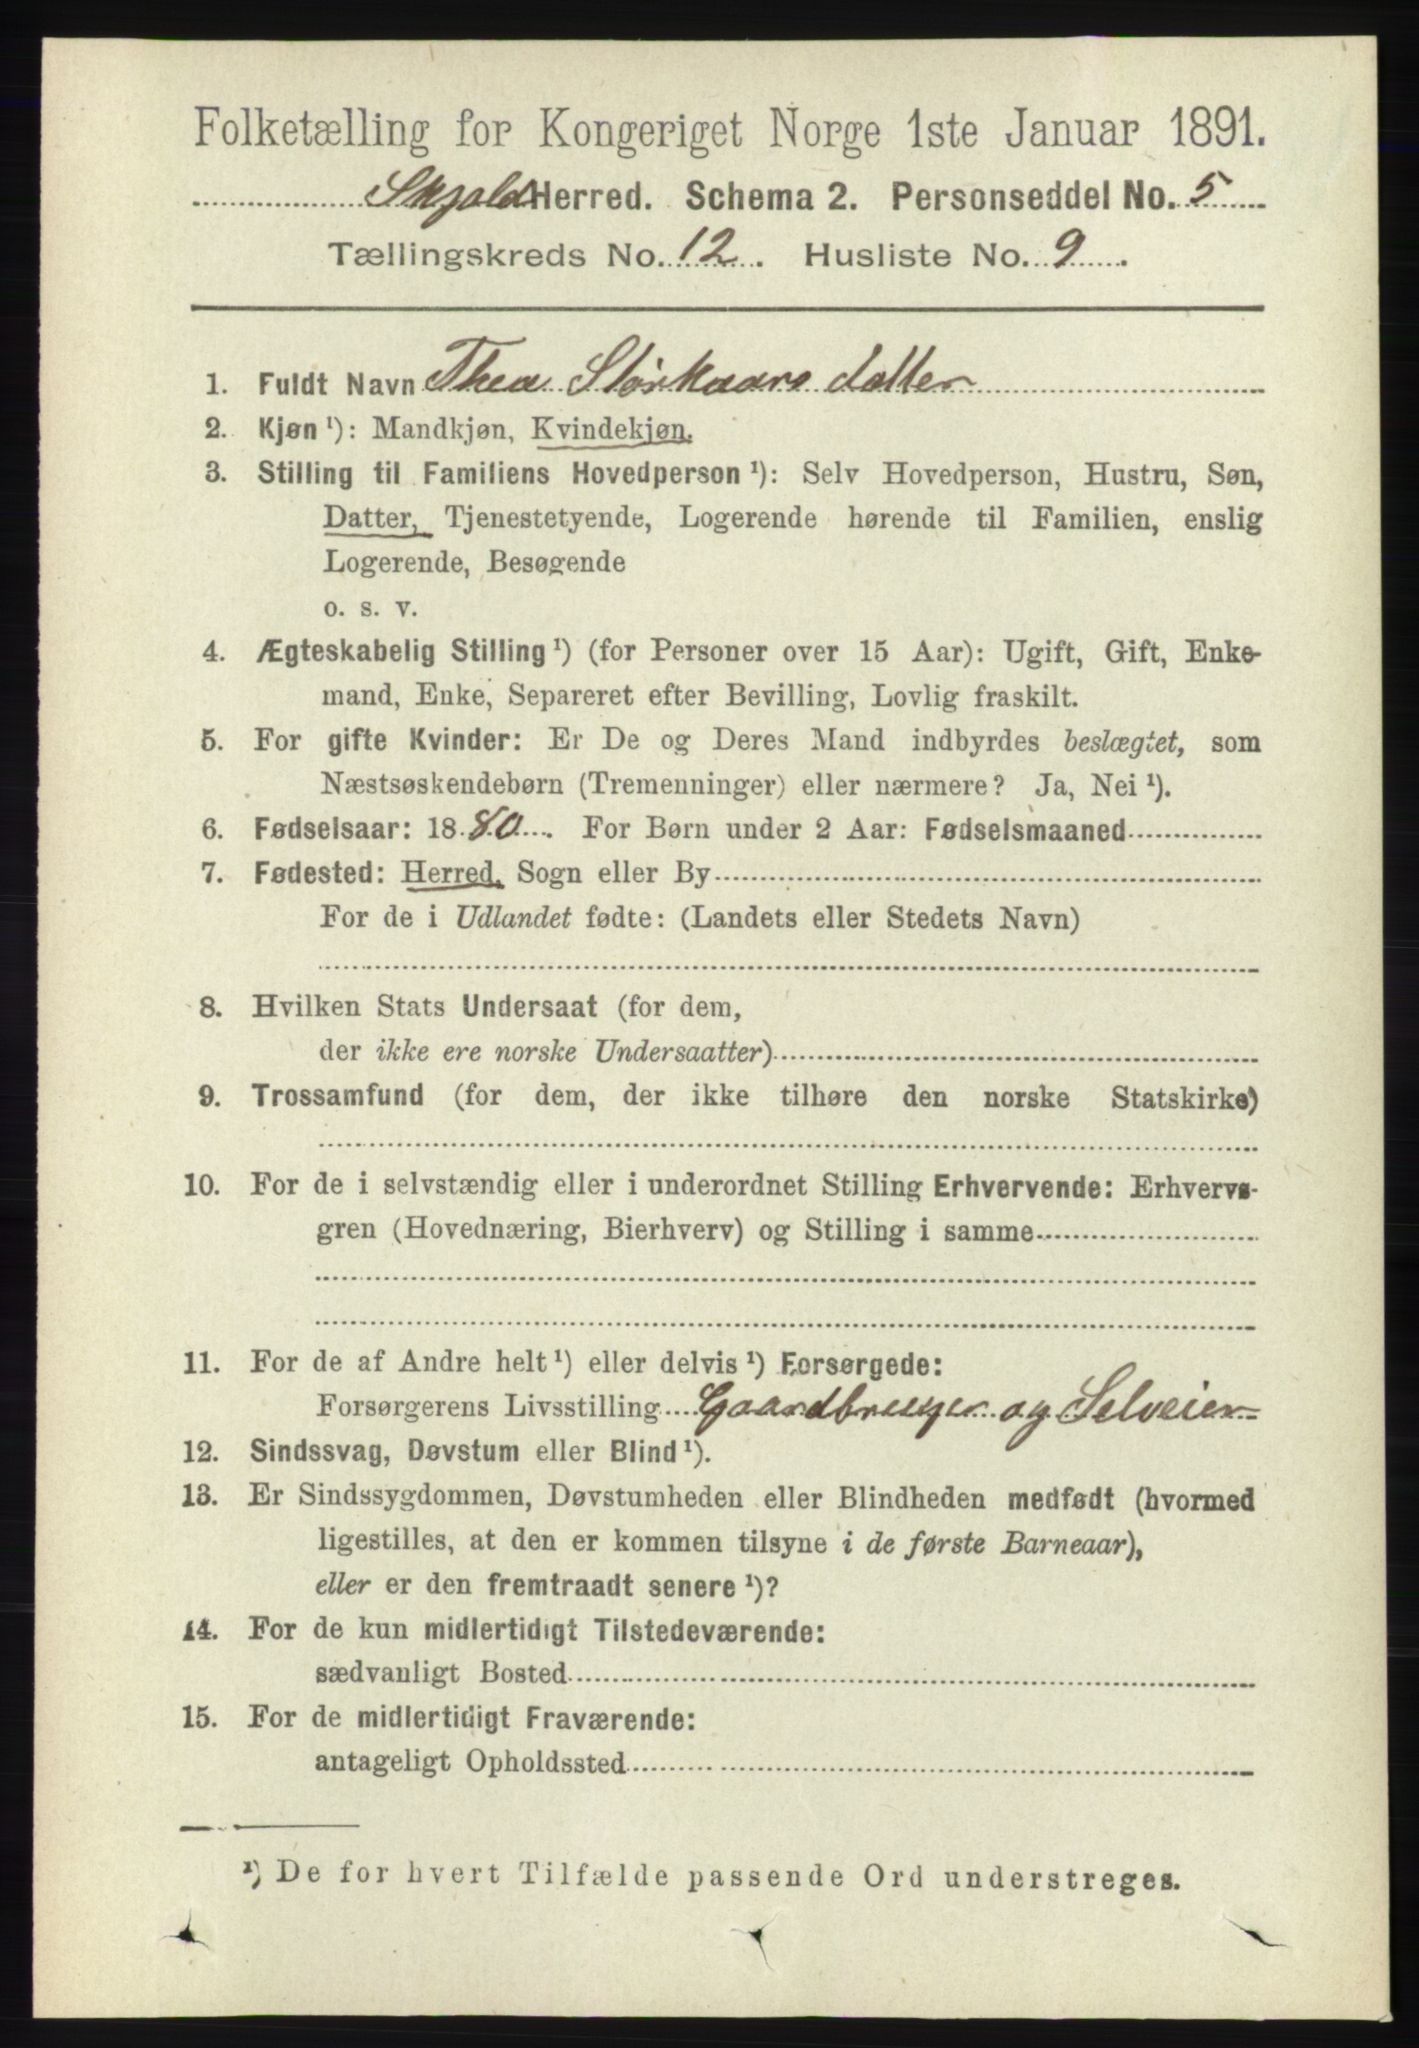 Folketælling for Kongeriget Norge 1ste Januar 1891.
Skjold Herred. Schema 2. Personseddel No. 5
Tællingskreds No. 12. Husliste No. 9.
1. Fuldt Navn Thea Störkaars datter
2. Kjøn ¹): Mandkjøn, Kvindekjøn.
3. Stilling til Familiens Hovedperson ¹): Selv Hovedperson, Hustru, Søn,
Datter, Tjenestetyende, Logerende hørende til Familien, enslig
Logerende, Besøgende
o. s. v.
4. Ægteskabelig Stilling ¹) (for Personer over 15 Aar): Ugift, Gift, Enke-
mand, Enke, Separeret efter Bevilling, Lovlig fraskilt.
5. For gifte Kvinder: Er De og Deres Mand indbyrdes beslægtet, som
Næstsøskendebørn (Tremenninger) eller nærmere? Ja, Nei ¹).
6. Fødselsaar: 1880. For Børn under 2 Aar: Fødselsmaaned
7. Fødested: Herred, Sogn eller By
For de i Udlandet fødte: (Landets eller Stedets Navn)
8. Hvilken Stats Undersaat (for dem,
der ikke ere norske Undersaatter)
9. Trossamfund (for dem, der ikke tilhøre den norske Statskirke)
10. For de i selvstændig eller i underordnet Stilling Erhvervende: Erhvervs-
gren (Hovednæring, Bierhverv) og Stilling i samme
11. For de af Andre helt ¹) eller delvis ¹) Forsørgede:
Forsørgerens Livsstilling Gaardbruger og Selveier
12. Sindssvag, Døvstum eller Blind ¹).
13. Er Sindssygdommen, Døvstumheden eller Blindheden medfødt (hvormed
ligestilles, at den er kommen tilsyne i de første Barneaar),
eller er den fremtraadt senere ¹)?
14. For de kun midlertidigt Tilstedeværende:
sædvanligt Bosted
15. For de midlertidigt Fraværende:
antageligt Opholdssted
¹) De for hvert Tilfælde passende Ord understreges.